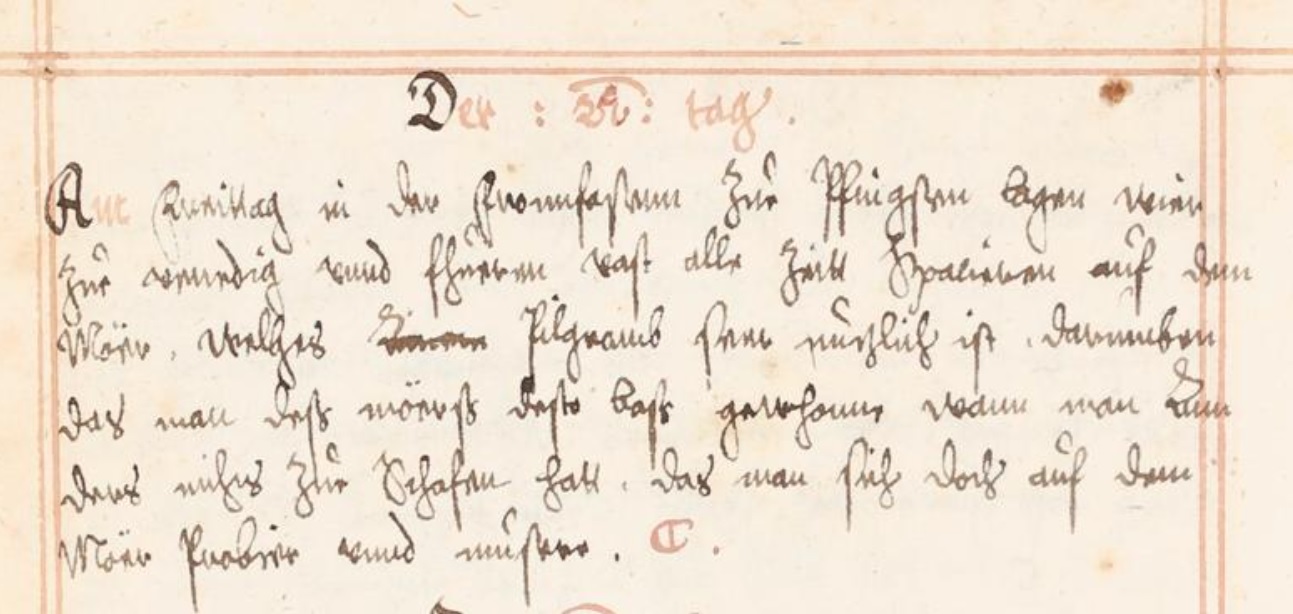 Der : xi : tag .
Am Freittag in der Fronnfastenn Zue Pfingsten lagen wier
Zue venedig vnnd fhueren vast alle Zeitt Spacieren auf dem
Möer , welches Pilgramb seer nuzlich ist . darumben
das man dess möerss desto bass gewhonne wann man Ann
ders nichts Zue Schafen hatt . das man sich doch auf dem
Möer Probier vnnd mustere . C .